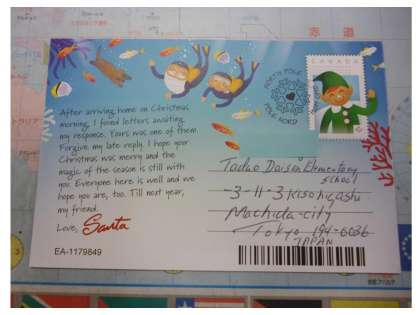 赤道
NORTH POLE
PÔLE NORD
CANADA
P
After arriving home on Christmas
morning, I found letters awaiting
my response. Yours was one of them.
Forgive my late reply. I hope your
Christmas was merry and the
magic of the season is still with
you. Everyone here is well and we
hope you are, too. Till next year,
my friend.
Love, Santa
EA-1179849
Tadao Daisan Elementary
School
3-11-3 Kisohigashi
Machida-city
Tokyo 194-0036
JAPAN